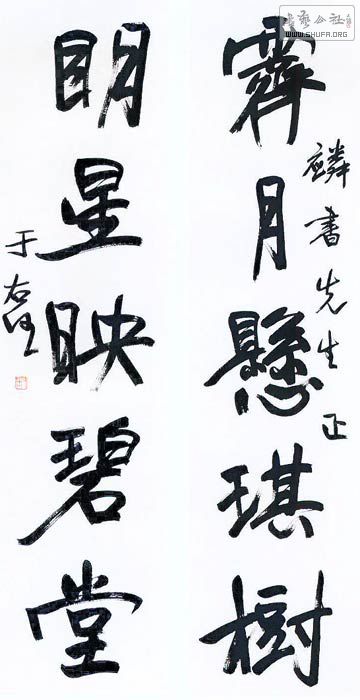 霽月懸琪樹
麟書先生正
明星映碧堂
于右任
書藝公社
WWW.SHUFA.ORG